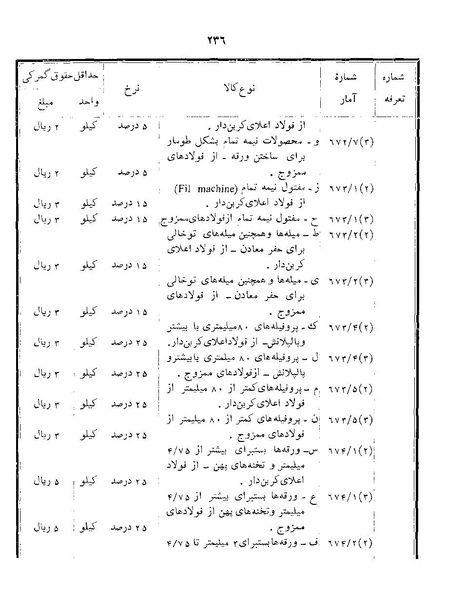 ۲۳۶
شماره تعرفه | شمارهٔ آمار | نوع کالا | نرخ | حداقل حقوق گمرکی
واحد | مبلغ
از فولاد اعلای کربن‌دار . ۵ درصد کیلو ۲ ریال
۶۷۲/۷(۳) و - محصولات نیمه تمام بشکل طومار
برای ساختن ورقه - از فولادهای
ممزوج . ۵ درصد کیلو ۲ ریال
۶۷۳/۱(۲) ز - مفتول نیمه تمام (Fil machine)
از فولاد اعلای کربن‌دار . ۱۵ درصد کیلو ۳ ریال
۶۷۳/۱(۳) ح - مفتول نیمه تمام ازفولادهای‌ممزوج. ۱۵ درصد کیلو ۳ ریال
۶۷۳/۲(۲) ط - میله‌ها وهمچنین میله‌های توخالی
برای حفر معادن - از فولاد اعلای
کربن‌دار . ۱۵ درصد کیلو ۳ ریال
۶۷۳/۲(۳) ی - میله‌ها و همچنین میله‌های توخالی
برای حفر معادن - از فولادهای
ممزوج . ۱۵ درصد کیلو ۳ ریال
۶۷۳/۴(۲) ک - پروفیله‌های ۸۰میلیمتری یا بیشتر
ویاپلانش- از فولاداعلای کربن‌دار. ۲۵ درصد کیلو ۳ ریال
۶۷۳/۴(۳) ل - پروفیله‌های ۸۰ میلیمتری یابیشترو
یاپلپلانش - ازفولادهای ممزوج . ۲۵ درصد کیلو ۳ ریال
۶۷۳/۵(۲) م - پروفیله‌های کمتر از ۸۰ میلیمتر از
فولاد اعلای کربن‌دار . ۲۵ درصد کیلو ۳ ریال
۶۷۳/۵(۳) ن - پروفیله‌های کمتر از ۸۰ میلیمتر از
فولادهای ممزوج . ۲۵ درصد کیلو ۳ ریال
۶۷۴/۱(۲) س- ورقه‌ها بستبرای بیشتر از ۴/۷۵
میلیمتر و تخته‌های پهن - از فولاد
اعلای کربن‌دار . ۲۵ درصد کیلو ۵ ریال
۶۷۴/۱(۳) ع - ورقه‌ها بستبرای بیشتر از ۴/۷۵
میلیمتر وتخته‌های پهن از فولادهای
ممزوج . ۲۵ درصد کیلو ۵ ریال
۶۷۴/۲(۲) ف- ورقه‌هابستبرای۳ میلیمتر تا ۴/۷۵